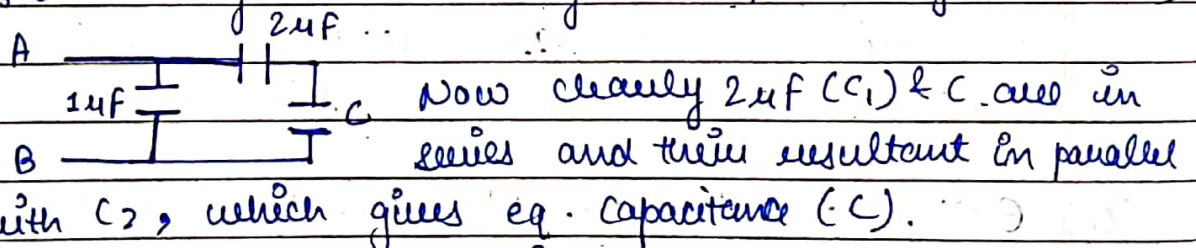 2μF
A
1μF
C
Now clearly 2μF (C₁) & C are in
B
series and their resultant in parallel
with C₂, which gives eq. Capacitance (C).